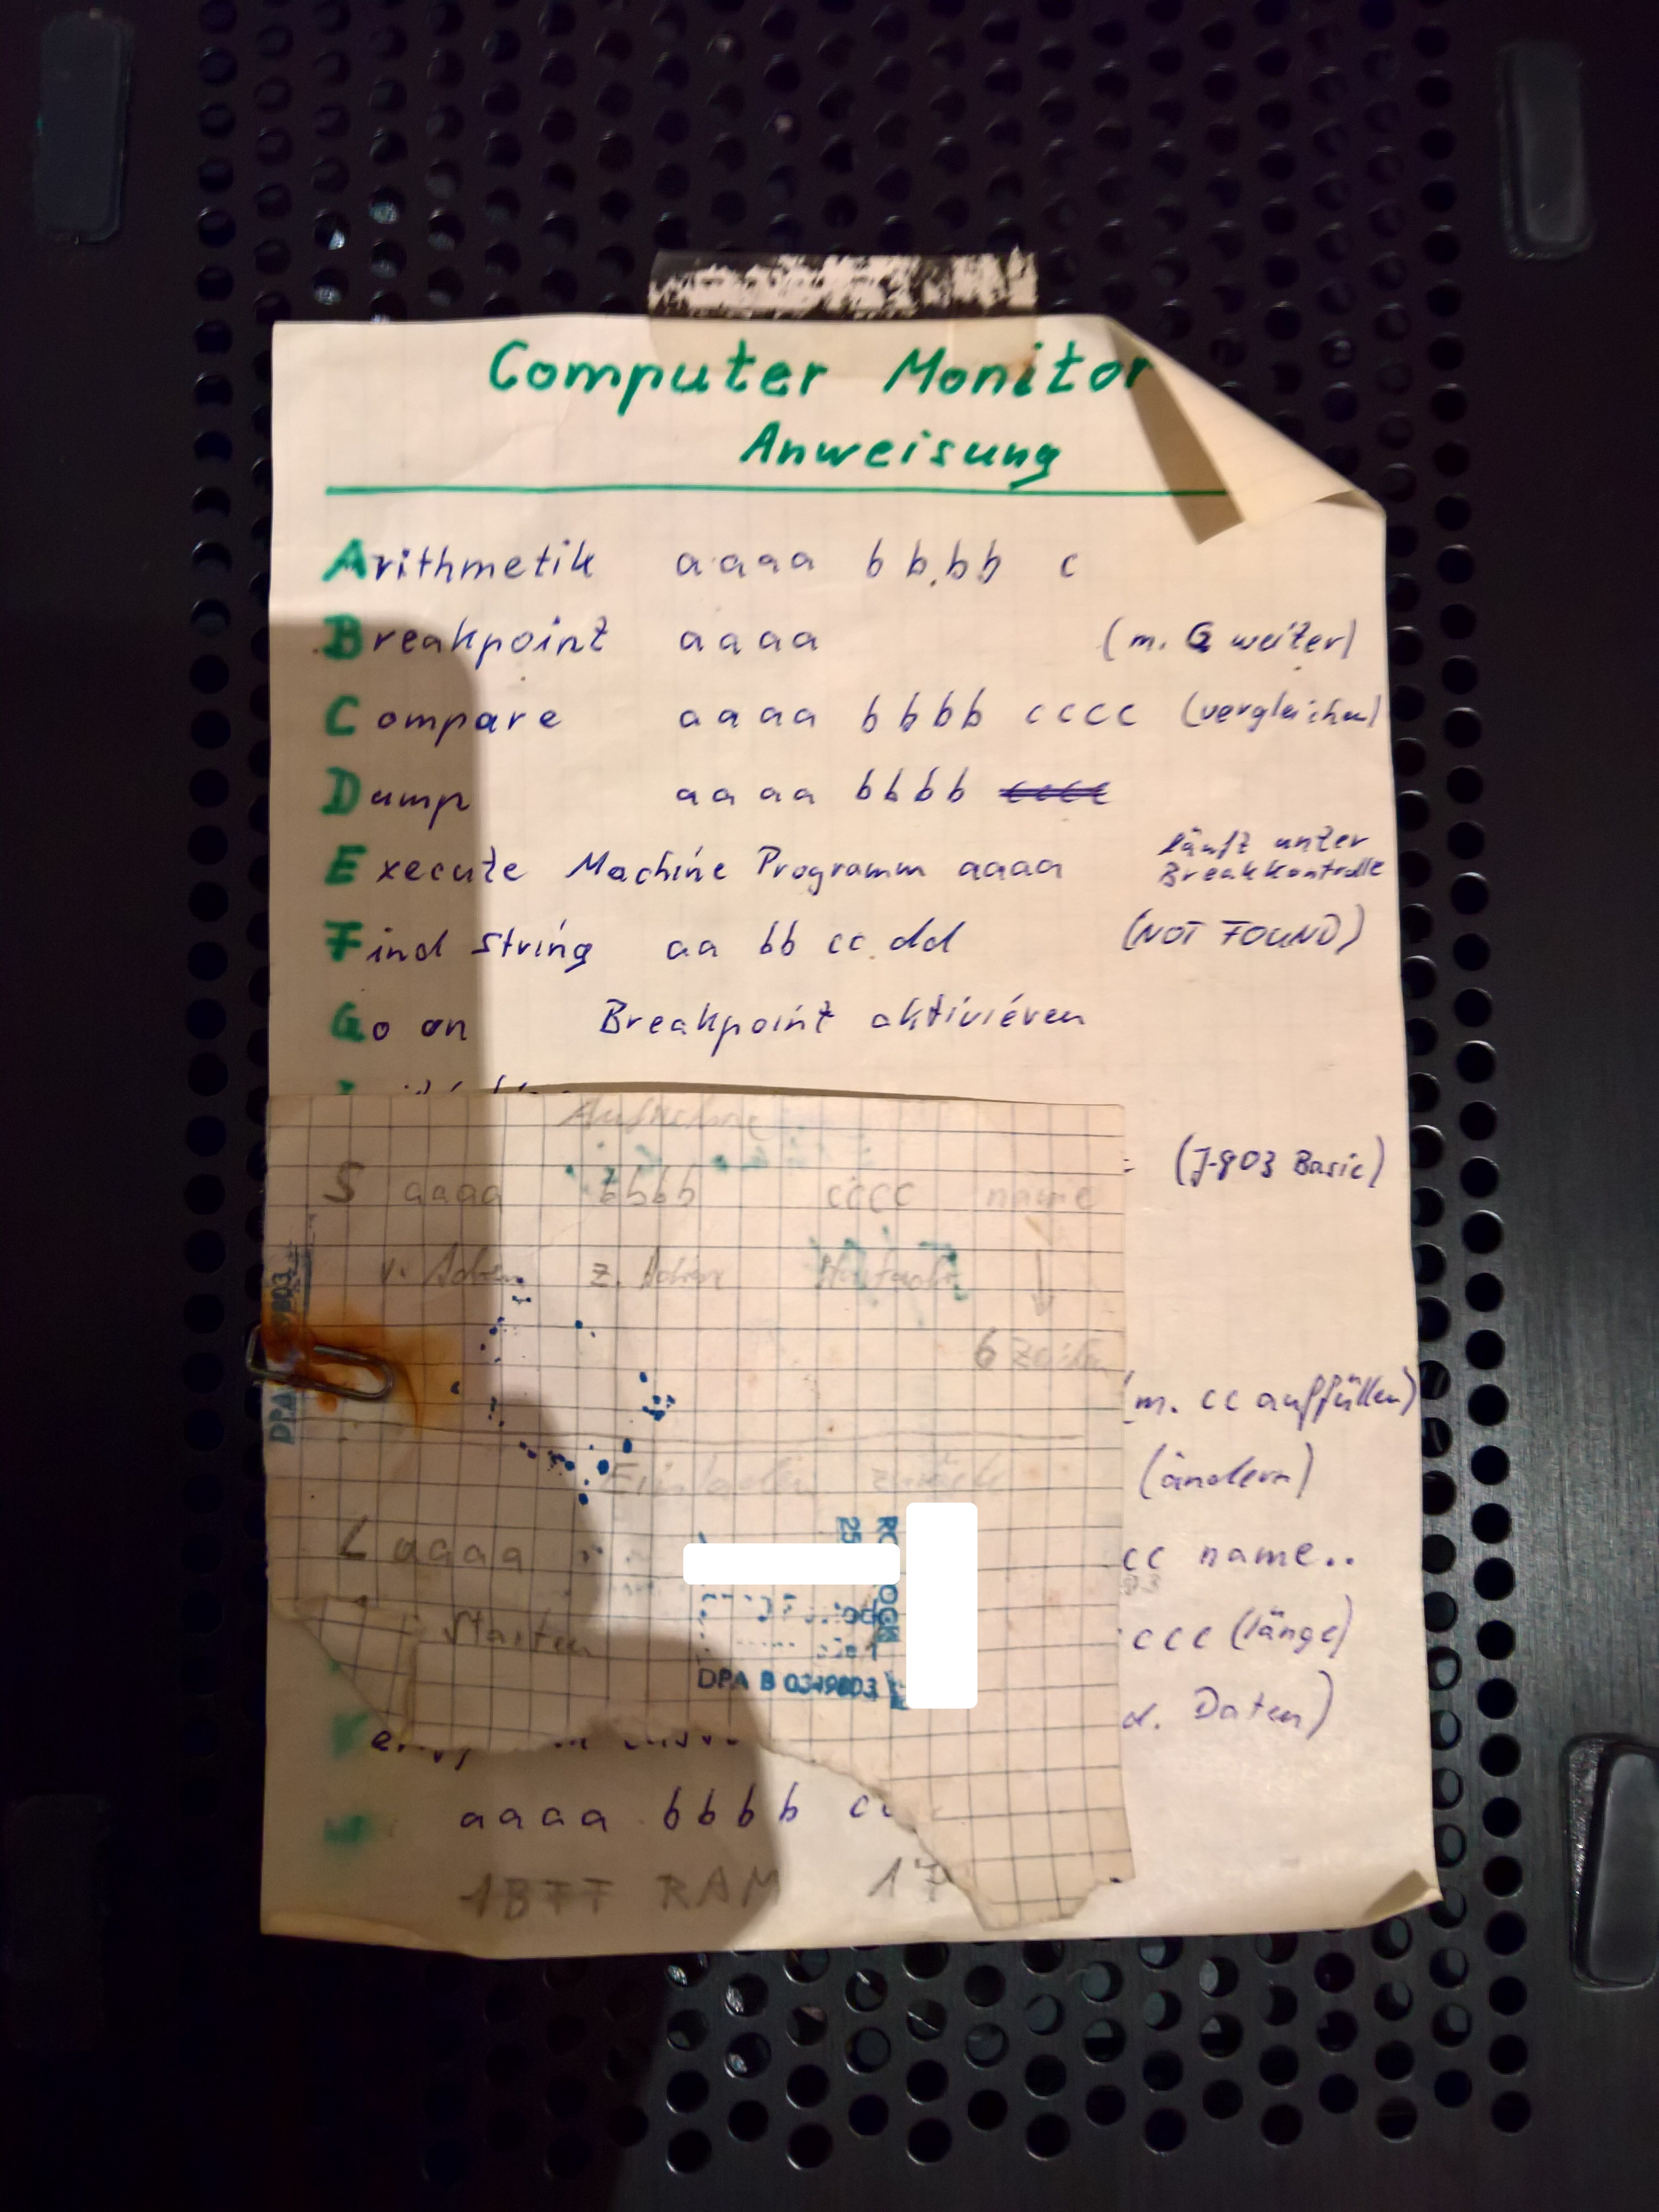 Computer Monitor
Anweisung
Arithmetik aaaa bbbb c
Breakpoint aaaa (m. G weiter)
Compare aaaa bbbb cccc (vergleichen)
Dump aaaa bbbb cccc
Execute Machine Programm aaaa läuft unter
Breakkontrolle
Find String aa bb cc dd (NOT FOUND)
Go on Breakpoint aktivieren
(J-803 Basic)
S aaaa bbbb cccc name
z.
6
(m. cc auffüllen)
(ändern)
Einladen zurück
L aaaa
cc name..
Starten
ccc (länge)
DPA B
d. Daten)
aaaa bbbb
1BFF RAM 17